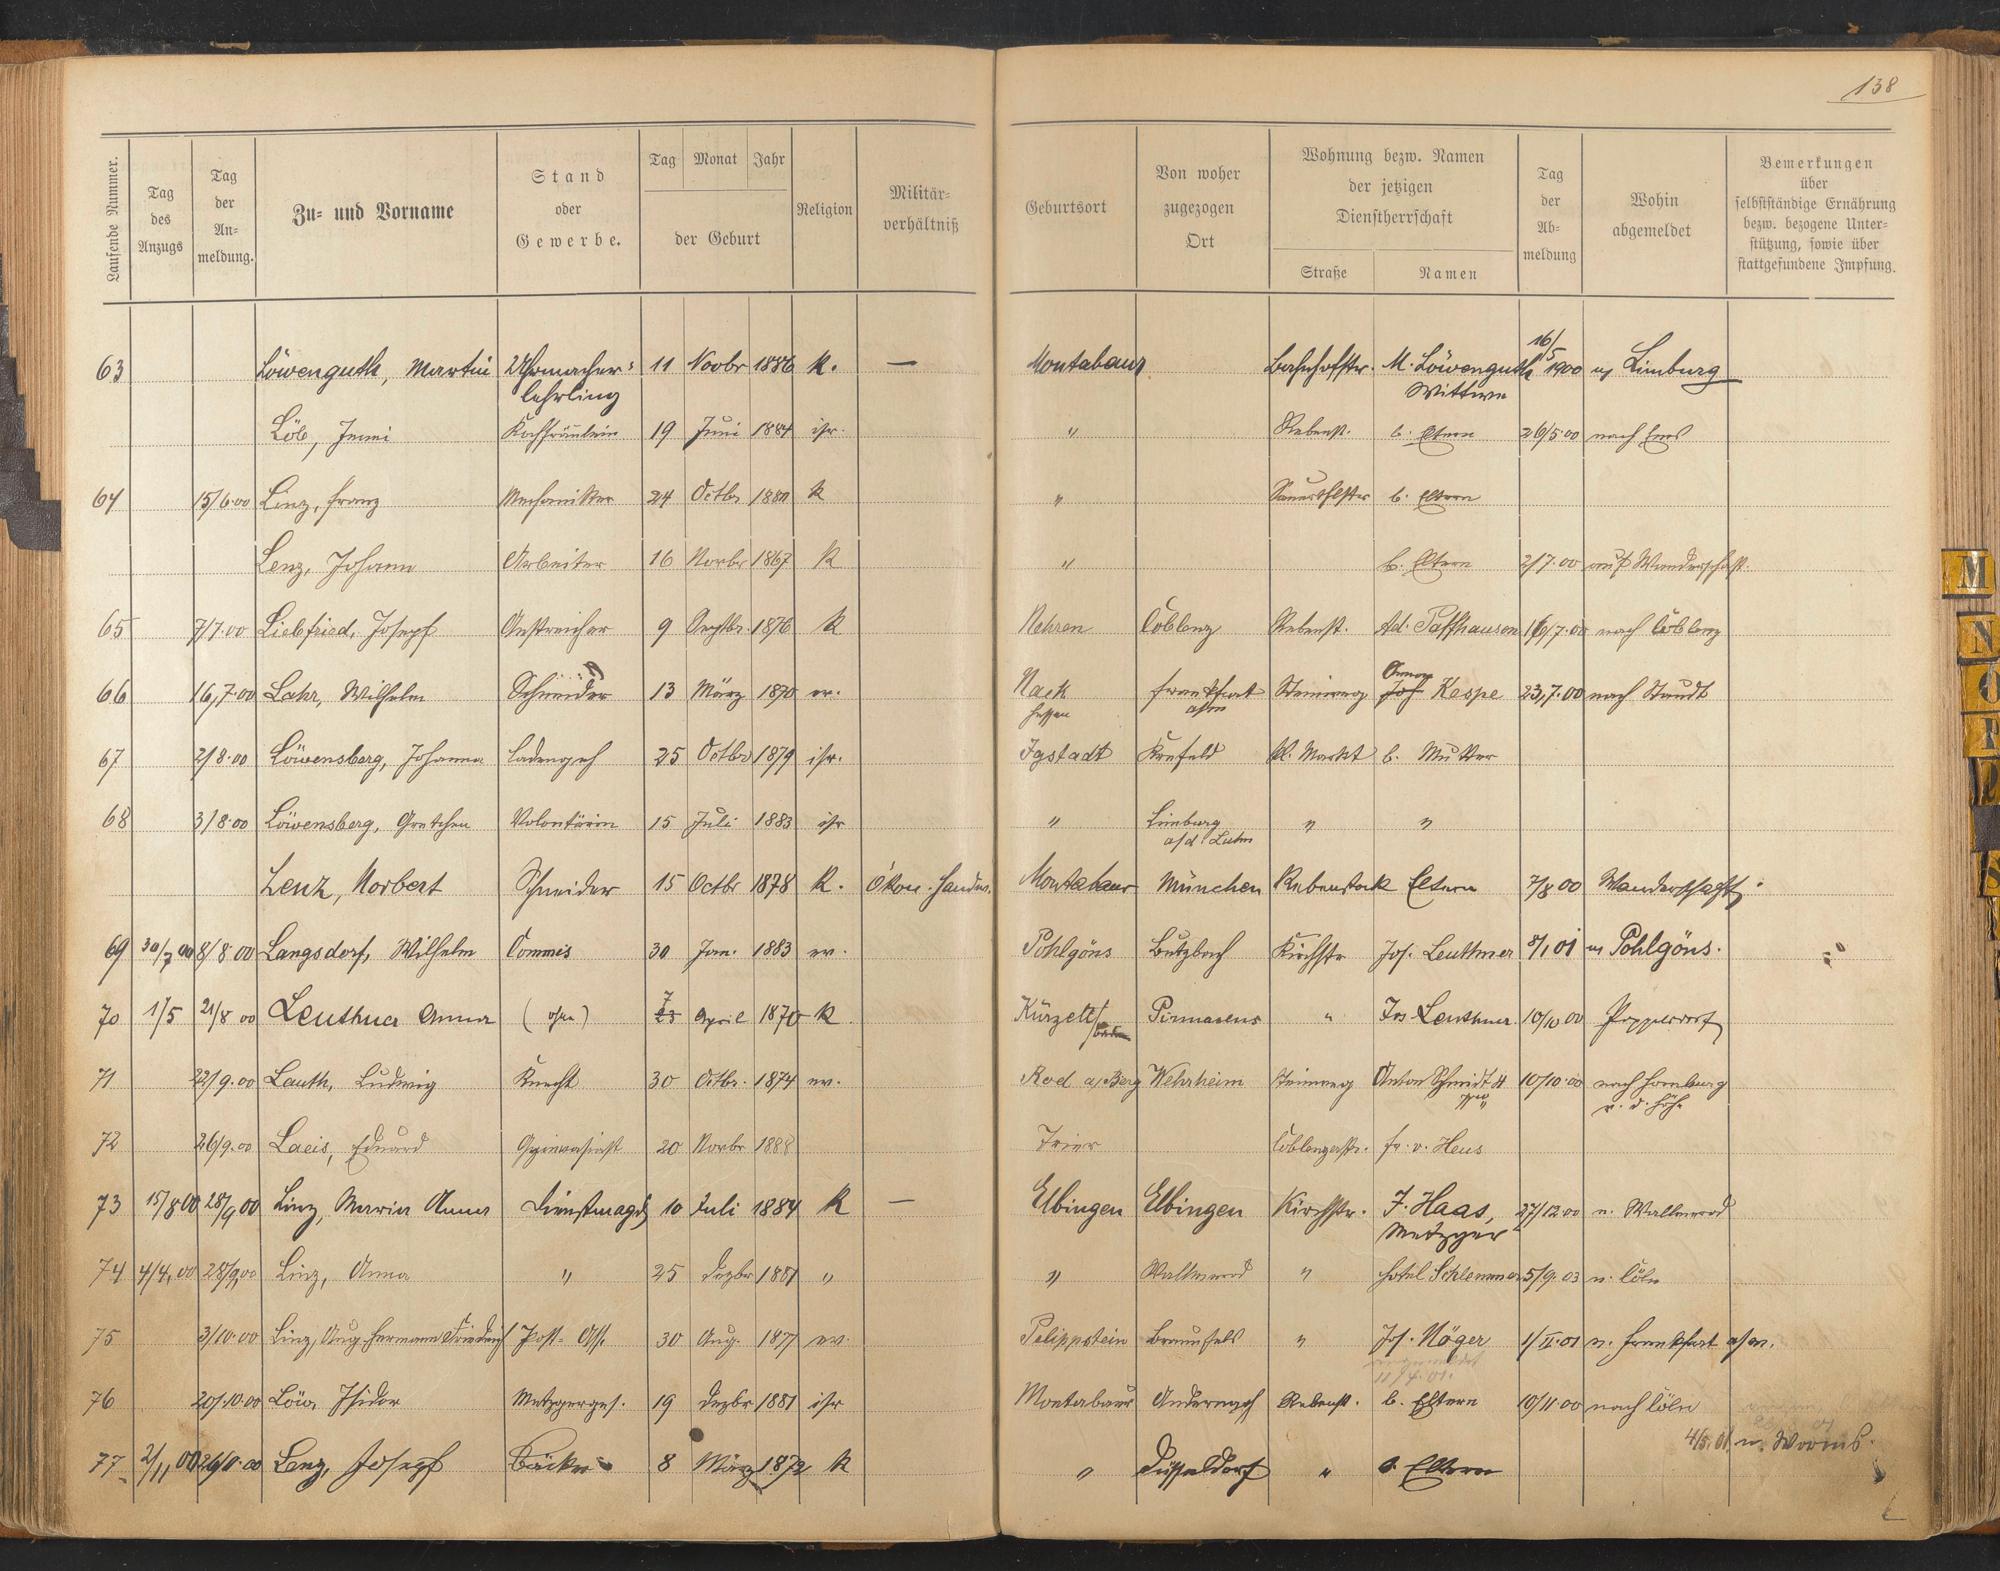 138
Laufende Nummer.
Tag des Anzugs
Tag der An- meldung.
Zu- und Vorname
Stand oder Gewerbe.
Tag Monat Jahr
der Geburt
Religion
Militär- verhältniß
Geburtsort
Von woher zugezogen Ort
Wohnung bezw. Namen der jetzigen Dienstherrschaft
Straße Namen
Tag der Ab- meldung
Wohin abgemeldet
Bemerkungen über selbstständige Ernährung bezw. bezogene Unter- stützung, sowie über stattgefundene Impfung.
63 Löwenguth, Martin Uhrmacher- lehrling 11 Novbr 1886 K. — Montabaur Bahnhofstr. M. Löwenguth Wittwe 16/5 1900 n. Limburg
Löb, Jenni Kochfräulein 19 Juni 1884 isr. " Rebenst. b. Eltern 26/5 00 nach Ems
64 15/6.00 Linz, Franz Mechaniker 24 Octbr 1880 K " b. Eltern
Lenz, Johann Arbeiter 16 Novbr 1867 K " b. Eltern 2/7.00 auf Wanderschaft.
65 7/7.00 Liebfried, Joseph Anstreicher 9 Septbr. 1876 K Nehren Coblenz Rebenst. Ad. Paffhausen 16/7.00 nach Coblenz
66 16/7.00 Lahr, Wilhelm Schneider 13 März 1870 ev. Nack Hessen Frankfurt a/m Steinweg Kespe 23/7.00 nach Staudt
67 2/8.00 Löwensberg, Johanna Ladengeh 25 Octbr 1879 isr. Igstadt Krefeld kl. Markt b. Mutter
68 3/8.00 Löwensberg, Gretchen Volontärin 15 Juli 1883 isr " Limburg a/d Lahn " "
Lenz, Norbert Schneider 15 Octbr 1878 K. Ökon. Handw. Montabaur München Rebenstock Eltern 7/8 00 Wanderschaft.
69 30/7 00 8/8 00 Langsdorf, Wilhelm Commis 30 Jan. 1883 ev. Pohlgöns Butzbach Kirchstr Jos. Leuthner 8/1 01 n Pohlgöns.
70 1/5 21/8 00 Leuthner Anna (ohne) 7 April 1870 K Kürzell/ Pirmasens " Jos Leuthner 10/10 00 Poppelsdorf
71 22/9.00 Lauth, Ludwig Knecht 30 Octbr. 1874 ev. Rod a/Berg Wehrheim Steinweg Anton Schmidt 10/10.00 nach Homburg v. d. Höhe
72 26/9.00 Laeis, Eduard Gymnasiast 20 Novbr 1888 Trier Coblenzerstr. fr. v. Heus
73 15/8 00 28/9 00 Linz, Maria Anna Dienstmagd 10 Juli 1884 K — Elbingen Elbingen Kirchstr. J. Haas, Metzger 27/12 00 n. Wallmerod
74 4/4.00 28/9.00 Linz, Anna " 25 Dezbr 1881 " " Wallmerod " Hotel Schlemmer 5/9.03 n. Cöln
75 3/10.00 Linz, Aug. Hermann Friedrich Post-Ass. 30 Aug. 1877 ev. Pelippstein Braunfels " Jos. Nöger 1/II.01 n. Frankfurt a/m.
11/4.01.
76 20/10.00 Löw, Isidor Metzgerges. 19 Dezbr 1881 isr Montabaur Andernach Rebenst. b. Eltern 10/11.00 nach Cöln
4/5.01 n. Worms.
77 2/11 00 26/11.00 Lenz, Joseph Bäcker 8 März 1872 K " Düsseldorf " b. Eltern
M
N
O
P
S